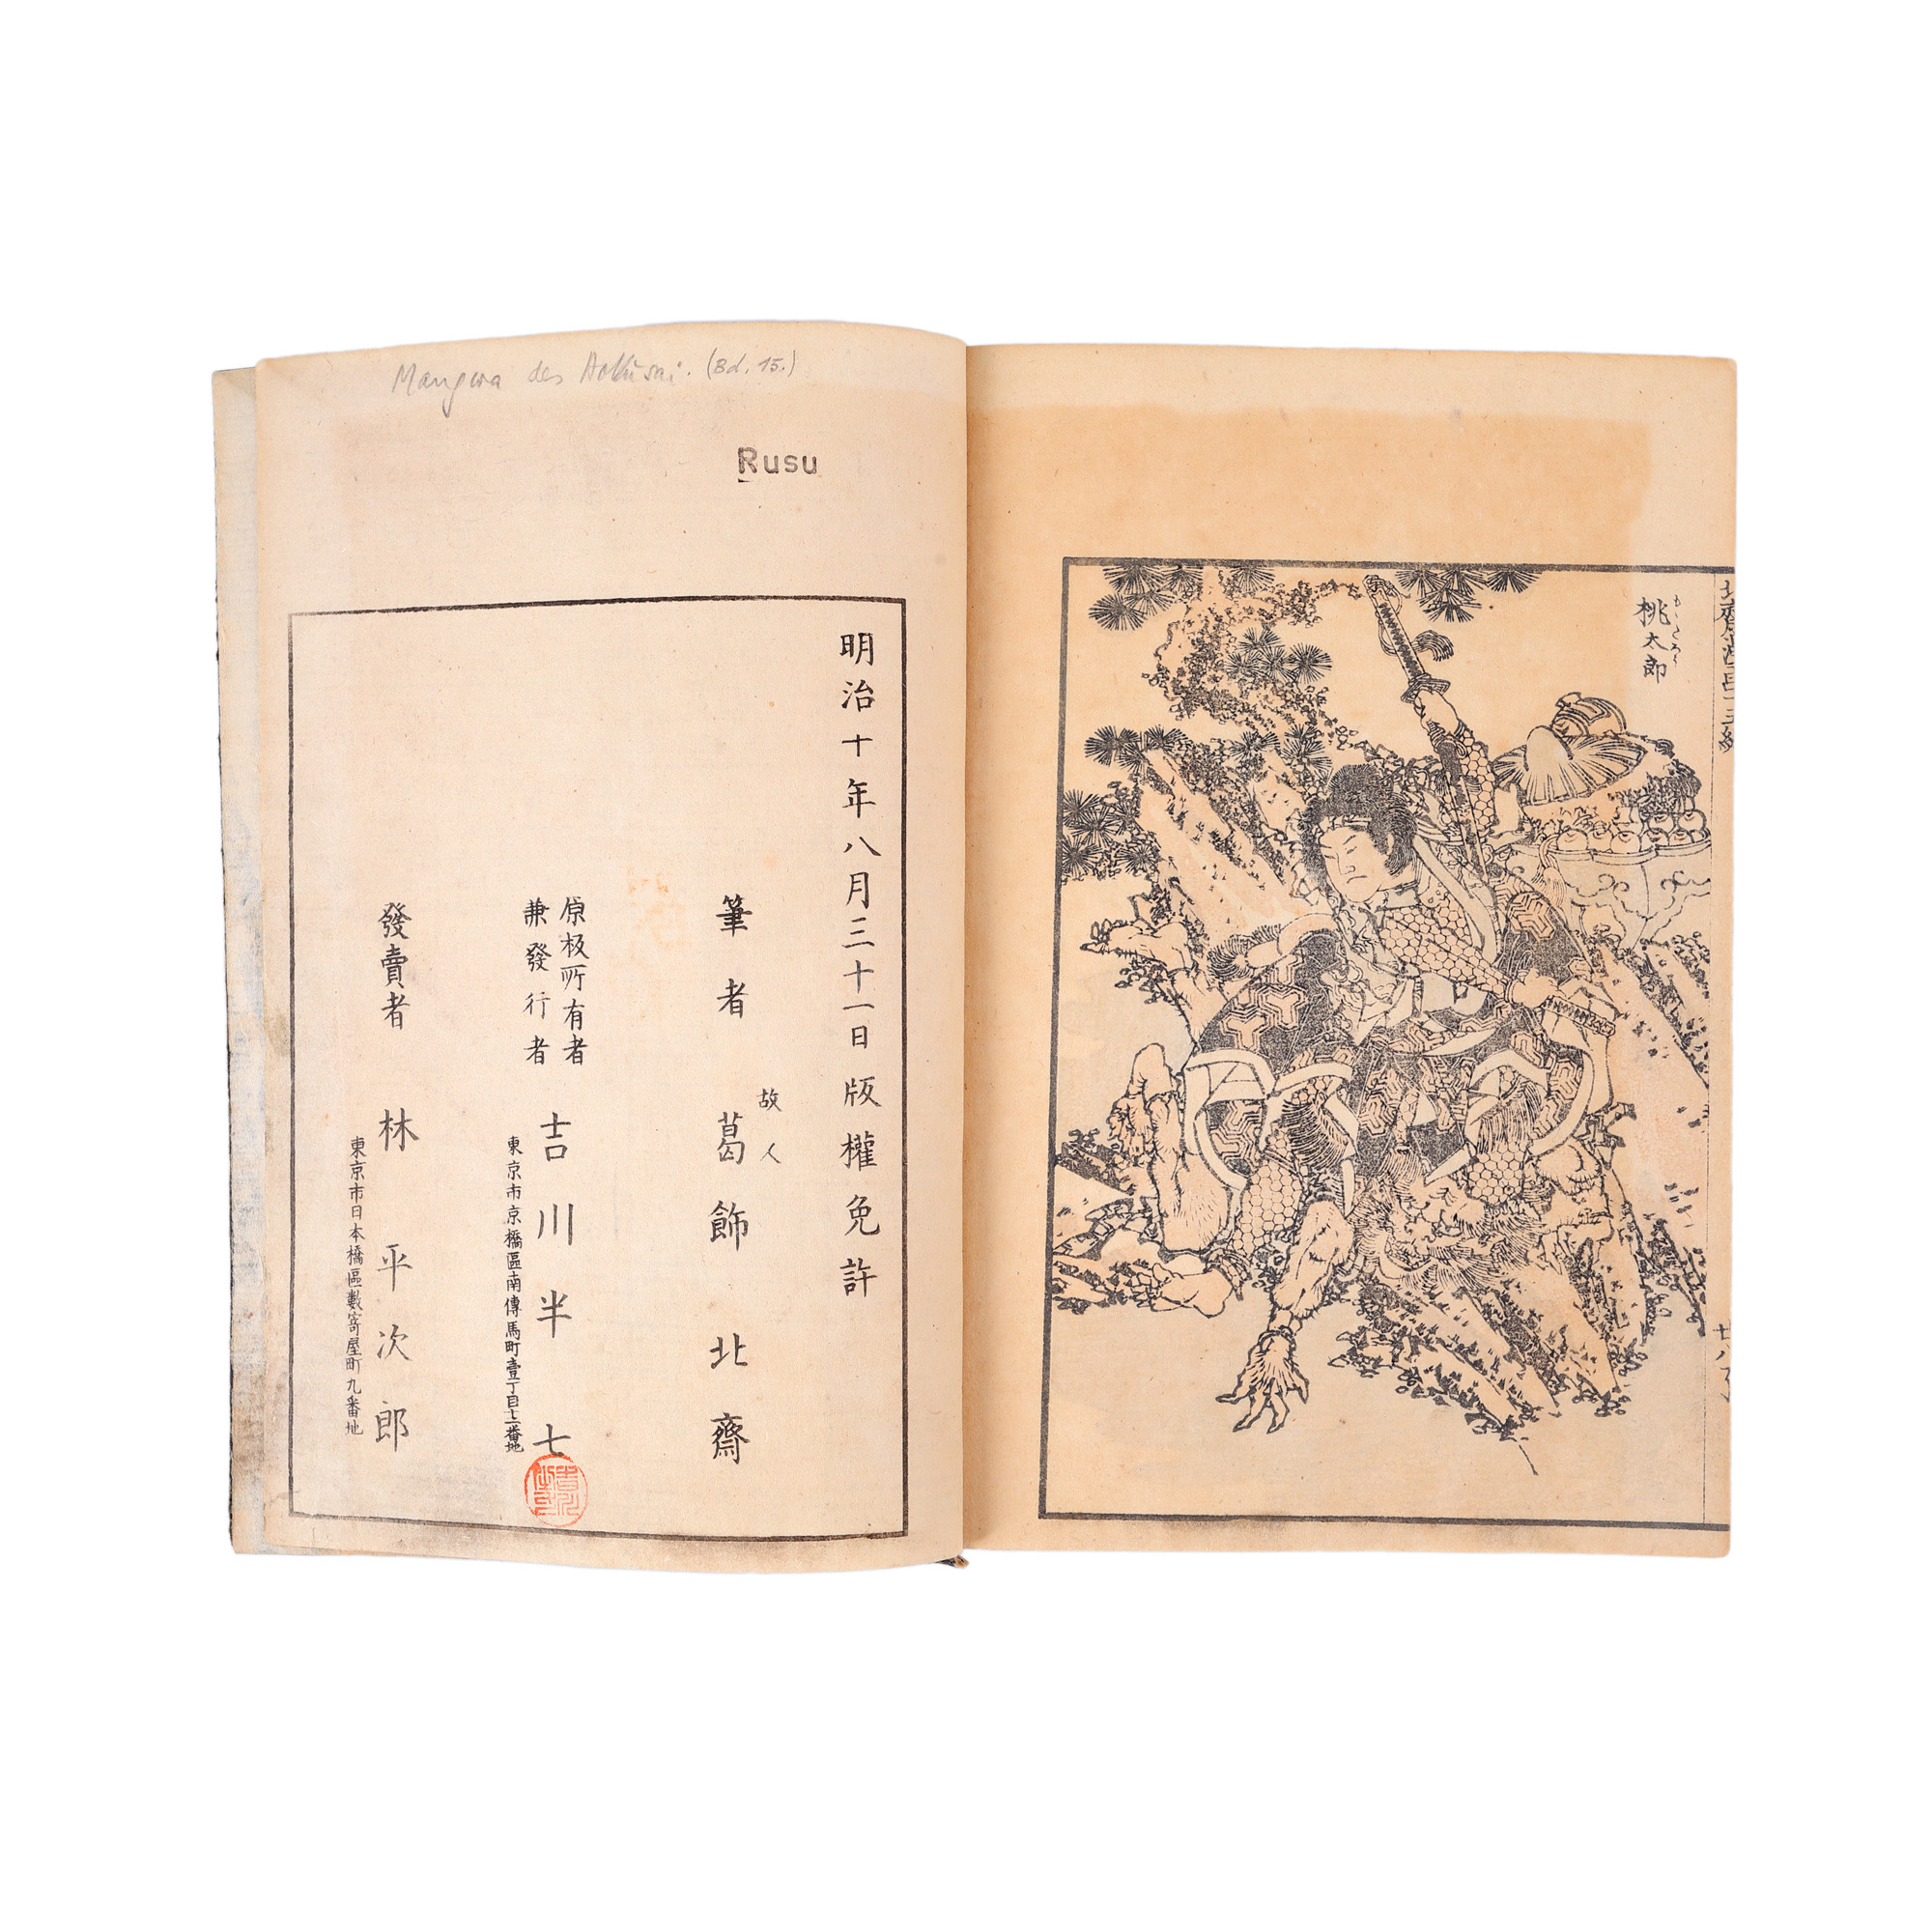 Mangwa des Hokusai. (Bd. 15.)
Rusu
桃太郎
もゝたらう
明治十年八月三十一日版權免許
筆者
故人
葛飾北齋
原板所有者
兼發行者
吉川半七
東京市京橋區南傳馬町壹丁目十二番地
發賣者
林平次郎
東京市日本橋區數寄屋町九番地